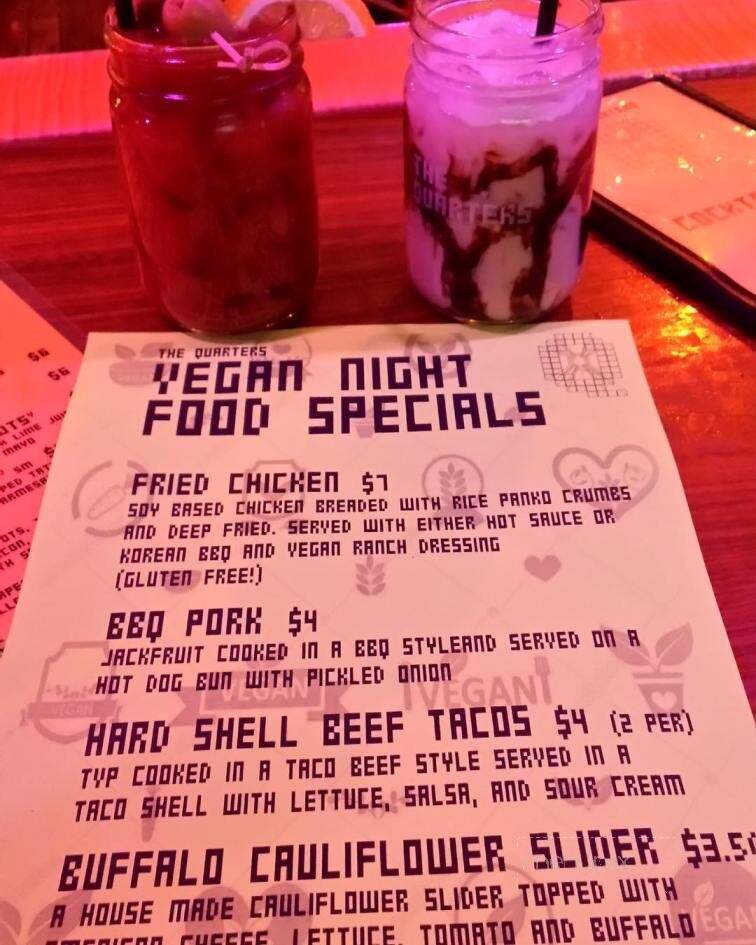 THE QUARTERS
COCKT
$6
$6
THE QUARTERS
VEGAN NIGHT
FOOD SPECIALS
FRIED CHICKEN $7
SOY BASED CHICKEN BREADED WITH RICE PANKO CRUMBS
AND DEEP FRIED. SERVED WITH EITHER HOT SAUCE OR
KOREAN BBQ AND VEGAN RANCH DRESSING
(GLUTEN FREE!)
BBQ PORK $4
JACKFRUIT COOKED IN A BBQ STYLEAND SERVED ON A
HOT DOG BUN WITH PICKLED ONION
VEGAN
VEGAN
VEGAN
HARD SHELL BEEF TACOS $4 (2 PER)
TVP COOKED IN A TACO BEEF STYLE SERVED IN A
TACO SHELL WITH LETTUCE, SALSA, AND SOUR CREAM
BUFFALO CAULIFLOWER SLIDER $3.50
A HOUSE MADE CAULIFLOWER SLIDER TOPPED WITH
AMERICAN CHEESE, LETTUCE, TOMATO AND BUFFALO
VEGAN